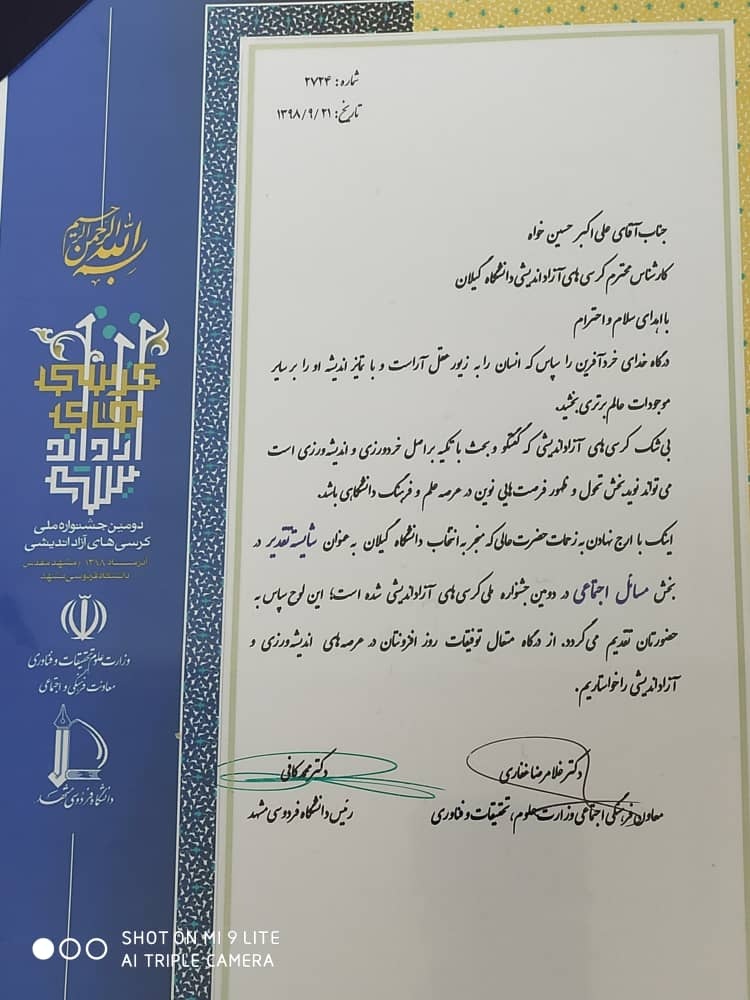 شماره: ۲۷۲۴
تاریخ: ۱۳۹۸/۹/۲۱
جناب آقای علی اکبر حسین خواه
کارشناس محترم کرسی های آزاداندیشی دانشگاه گیلان
با اهدای سلام و احترام
درگاه خدای خردآفرین را سپاس که انسان را به زیور عقل آراست و با تمایز اندیشه او را بر سایر
موجودات عالم برتری بخشید.
بی شک کرسی های آزاداندیشی که گفتگو و بحث با تکیه بر اصل خردورزی و اندیشه ورزی است
می تواند نویدبخش تحول و ظهور فرصت هایی نوین در عرصه علم و فرهنگ دانشگاهی باشد.
اینک با ارج نهادن به زحمات حضرت عالی که منجر به انتخاب دانشگاه گیلان به عنوان شایسته تقدیر در
بخش مسائل اجتماعی در دومین جشنواره ملی کرسی های آزاداندیشی شده است؛ این لوح سپاس به
حضورتان تقدیم می گردد. از درگاه متعال توفیقات روز افزونتان در عرصه های اندیشه ورزی و
آزاداندیشی را خواستاریم.
دکتر غلامرضا غفاری
معاون فرهنگی اجتماعی وزارت علوم، تحقیقات و فناوری
دکتر محمد کافی
رئیس دانشگاه فردوسی مشهد
بسم الله الرحمن الرحیم
کرسی
های
آزاداند
یشی
دومین جشنواره ملی
کرسی های آزاداندیشی
آذر مــاه ۱۳۹۸ / مشهد مقدس
دانشگاه فردوسی مشهد
وزارت علوم تحقیقات و فناوری
معاونت فرهنگی و اجتماعی
دانشگاه فردوسی مشهد
SHOT ON MI 9 LITE
AI TRIPLE CAMERA